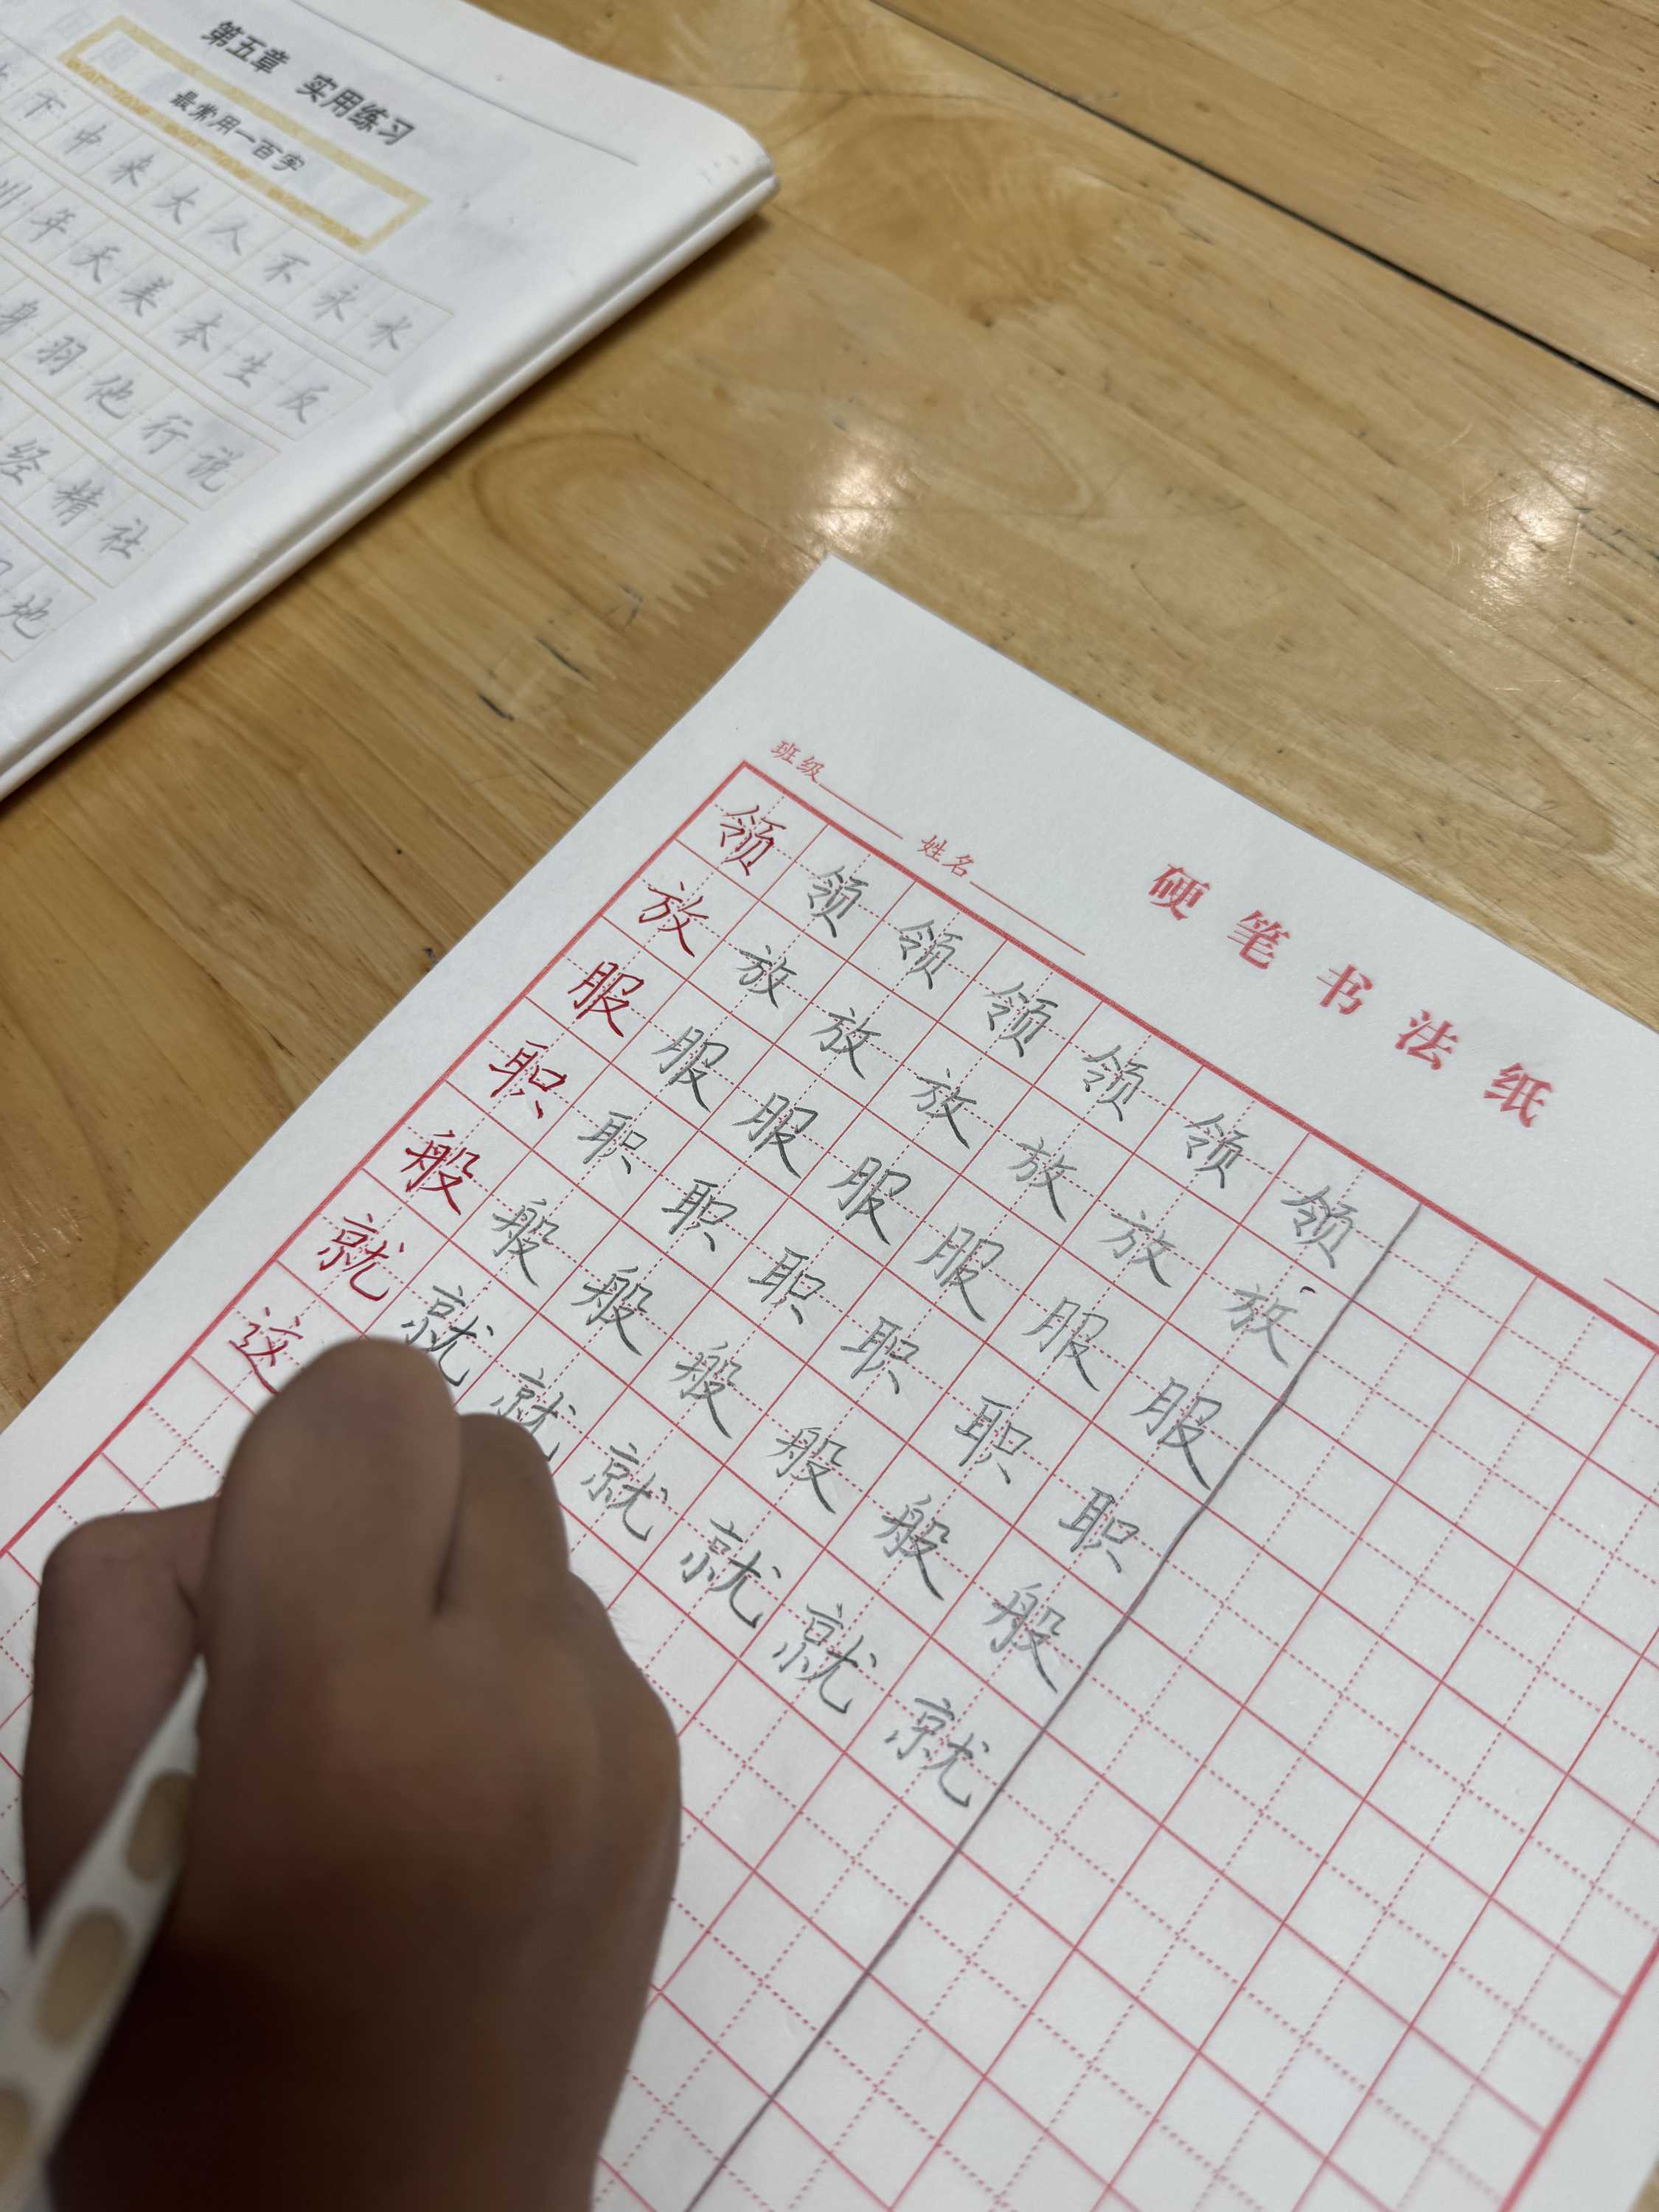 第五章 实用练习
最常用一百字
下中来大人不永水
州年天美本生反
身羽他行说
经精社
地
硬笔书法纸
班级 姓名
领领领领领领领
放放放放放放放
服服服服服服服
职职职职职职职
般般般般般般般
就就就就就就就
这